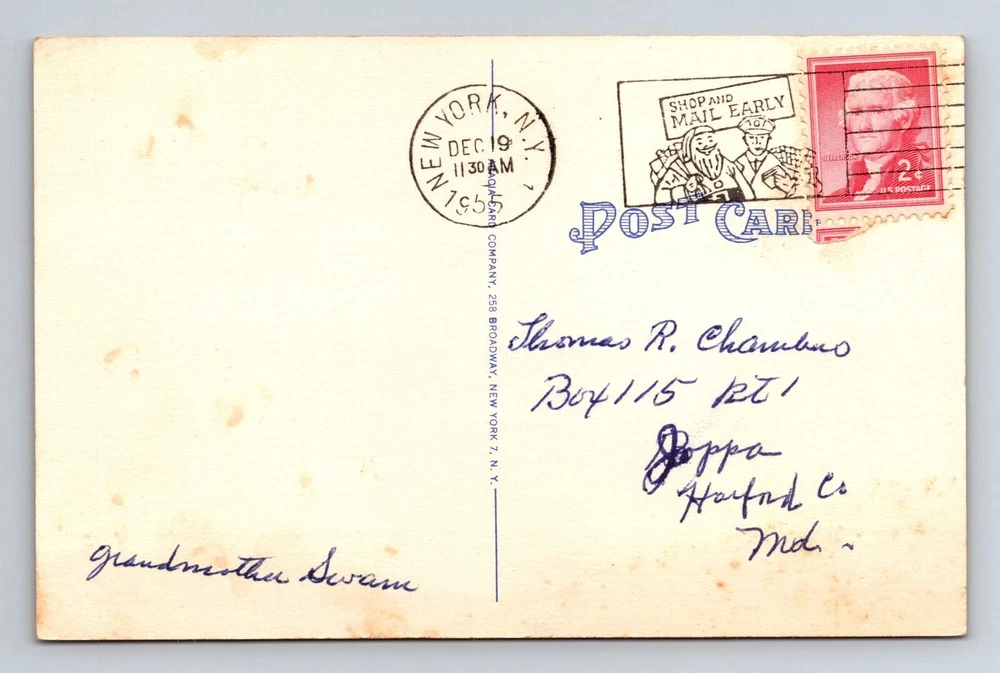 NEW YORK, N.Y. 1
DEC 19
11 30 AM
1955
SHOP AND
MAIL EARLY
JEFFERSON
2¢
U.S. POSTAGE
POST CARD
ACACIA CARD COMPANY, 258 BROADWAY, NEW YORK 7, N. Y.
Thomas R. Chambers
Box 115 Rt 1
Joppa
Harford Co
Md.
grandmother Swam